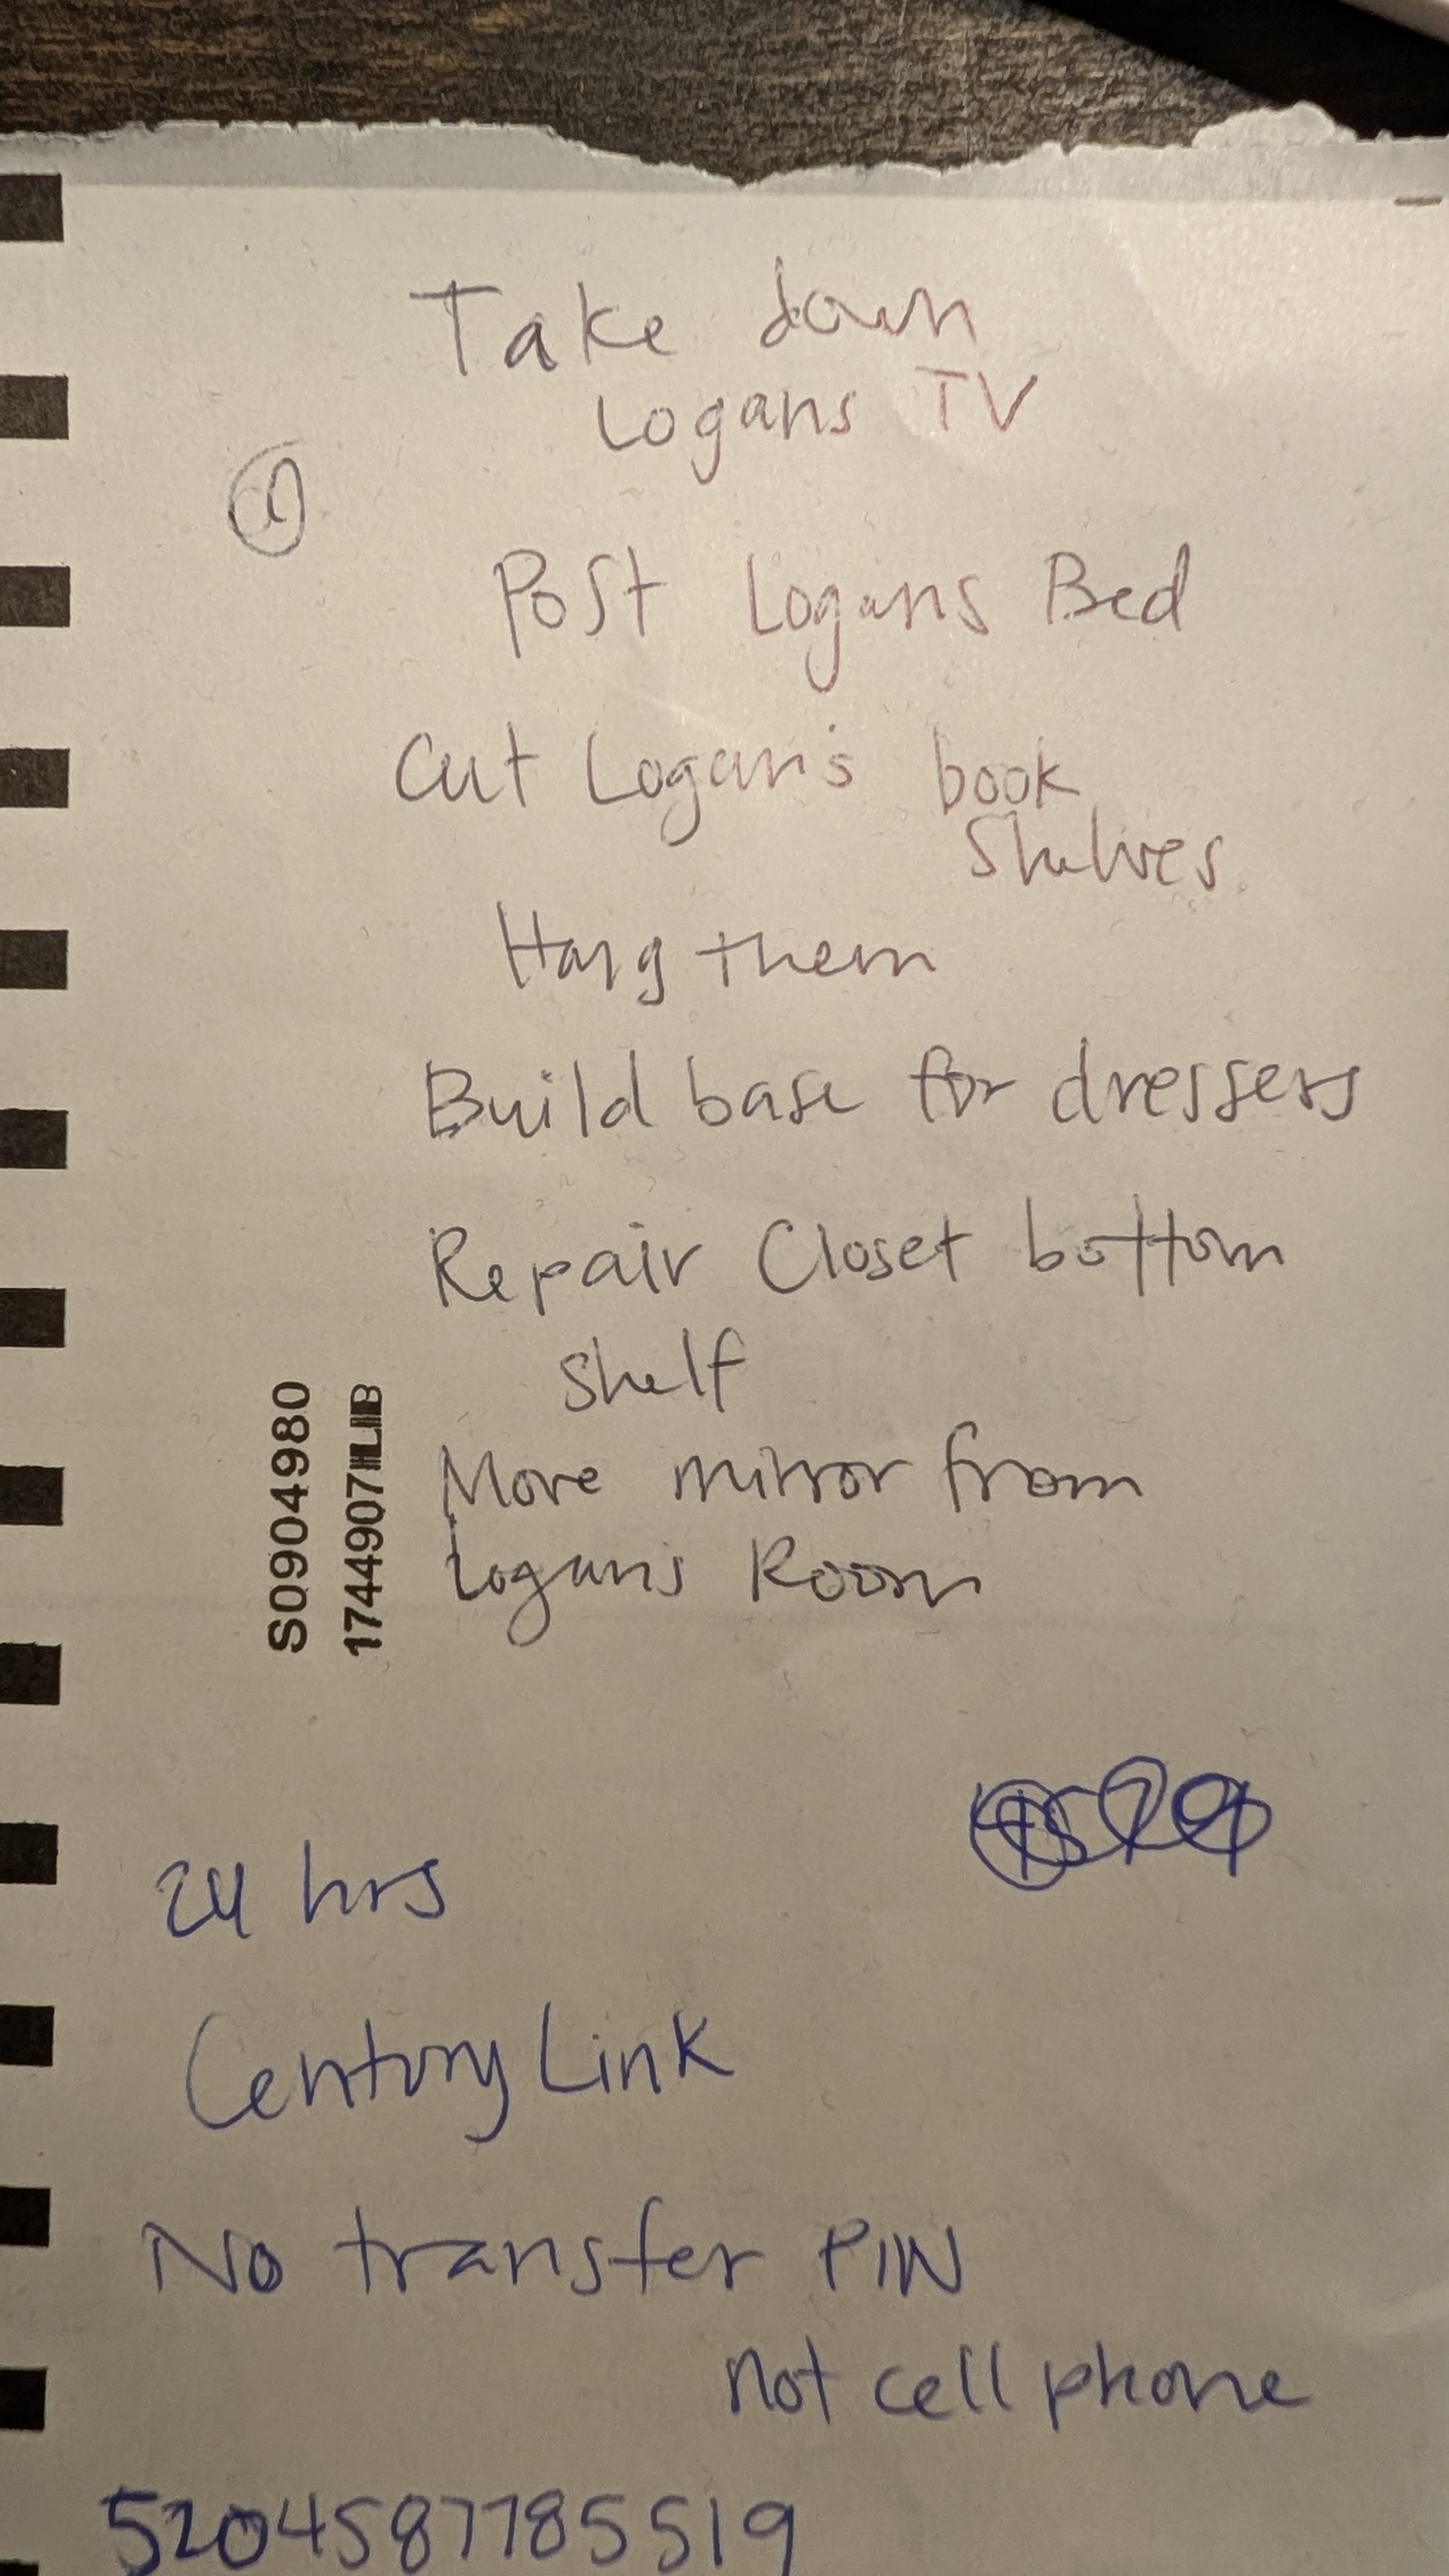 Take down
Logans TV
1
Post Logans Bed
Cut Logan's book
Shelves
Hang them
Build base for dressers
Repair Closet bottom
shelf
Move mirror from
Logans Room
S0904980
1744907
24 hrs
CenturyLink
No transfer PIN
not cell phone
5204587785519